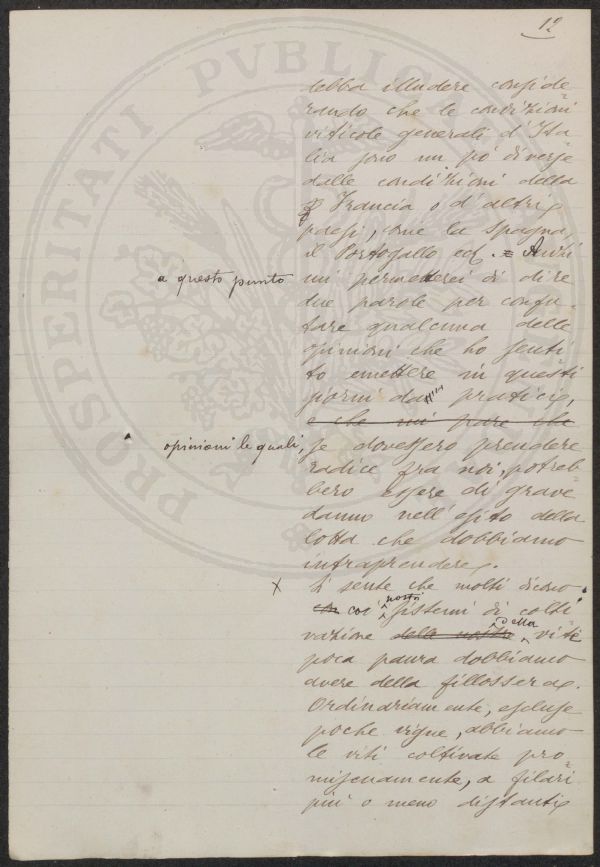 12
debba illudere conside
rando che le condizioni
viticole generali d'Ita
lia sono un pò diverse
dalle condizioni della
Francia o d'altri
paesi, come la Spagna,
il Portogallo ecc. Anzi
a questo punto
mi permetterei di dire
due parole per confu-
tare qualcuna delle
opinioni che ho senti
to emettere in questi
giorni dai pratici,
e che mi pare che
opinioni le quali,
se dovessero prendere
radice fra noi, potreb
bero essere di grave
danno nell'esito della
lotta che dobbiamo
intraprendere.
X Si sente che molti dicono:
con coi nostri sistemi di colti
vazione della nostra della vite
poca paura dobbiamo
avere della fillossera.
Ordinariamente, escluse
poche vigne, abbiamo
le viti coltivate pro=
miscuamente, a filari
più o meno distanti
PROSPERITATI PVBLICAE